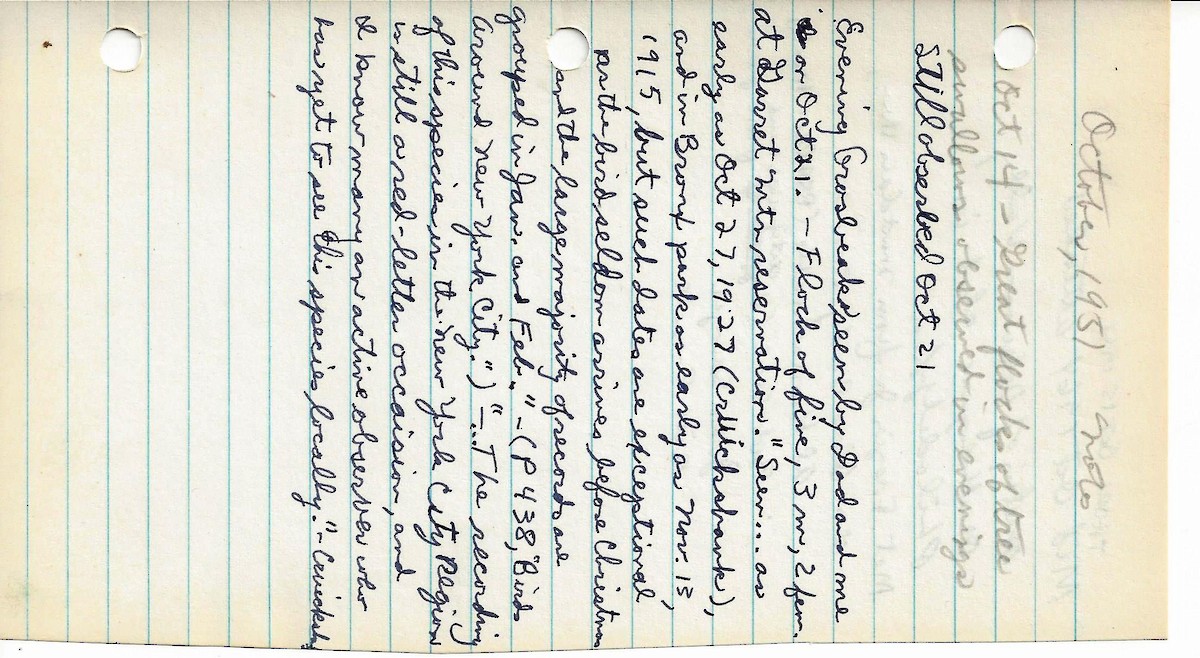 October, 1951 Notes
Oct 14 - Great flocks of tree
swallows observed in evenings
Still observed Oct 21
Evening Grosbeaks seen by Dad and me
or Oct 21. - Flock of five, 3 m, 2 fem.
at Garret Mtn reservation. "Seen... as
early as Oct 27, 1927 (Cruickshank),
and in Bronx park as early as Nov. 13,
1915, but such dates are exceptional
as the bird seldom arrives before Christmas
and the large majority of records are
grouped in Jan. and Feb." - (P 438, "Birds
Around New York City.") "-...The recording
of this species in the New York City Region
is still a red-letter occaision, and
I know many an active observer who
has yet to see this species locally." -